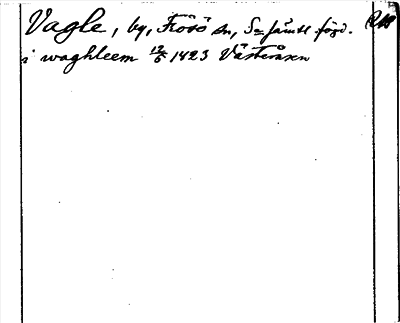 Vagle, by, Frösö sn, S= jämtl. fögd.
i waghleem 12/6 1423 Västeråsen